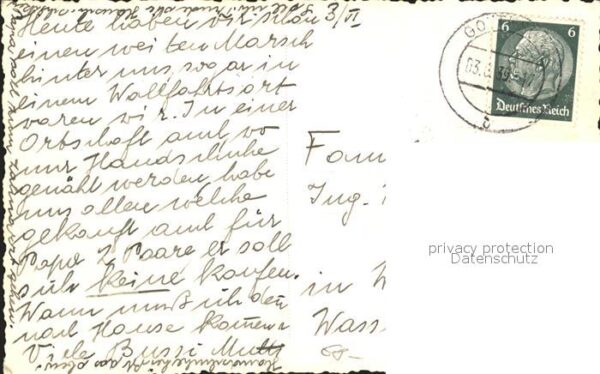 Heute haben wir schon 3/VI
einen weiten Marsch
hinter uns, sogar in
einem Wallfahrtsort
waren wir. In einer
Ortschaft amt, wo
nur Handschuhe
genäht werden, habe
uns allen welche
gekauft amt für
Papa 2 Paare er soll
sich keine kaufen.
Wann muß ich den
nach Hause kommen
Viele Bussi Mutty
Fam
Ing.
in W
Wass
GO
03.6.39
b
6 6
Deutsches Reich
privacy protection
Datenschutz